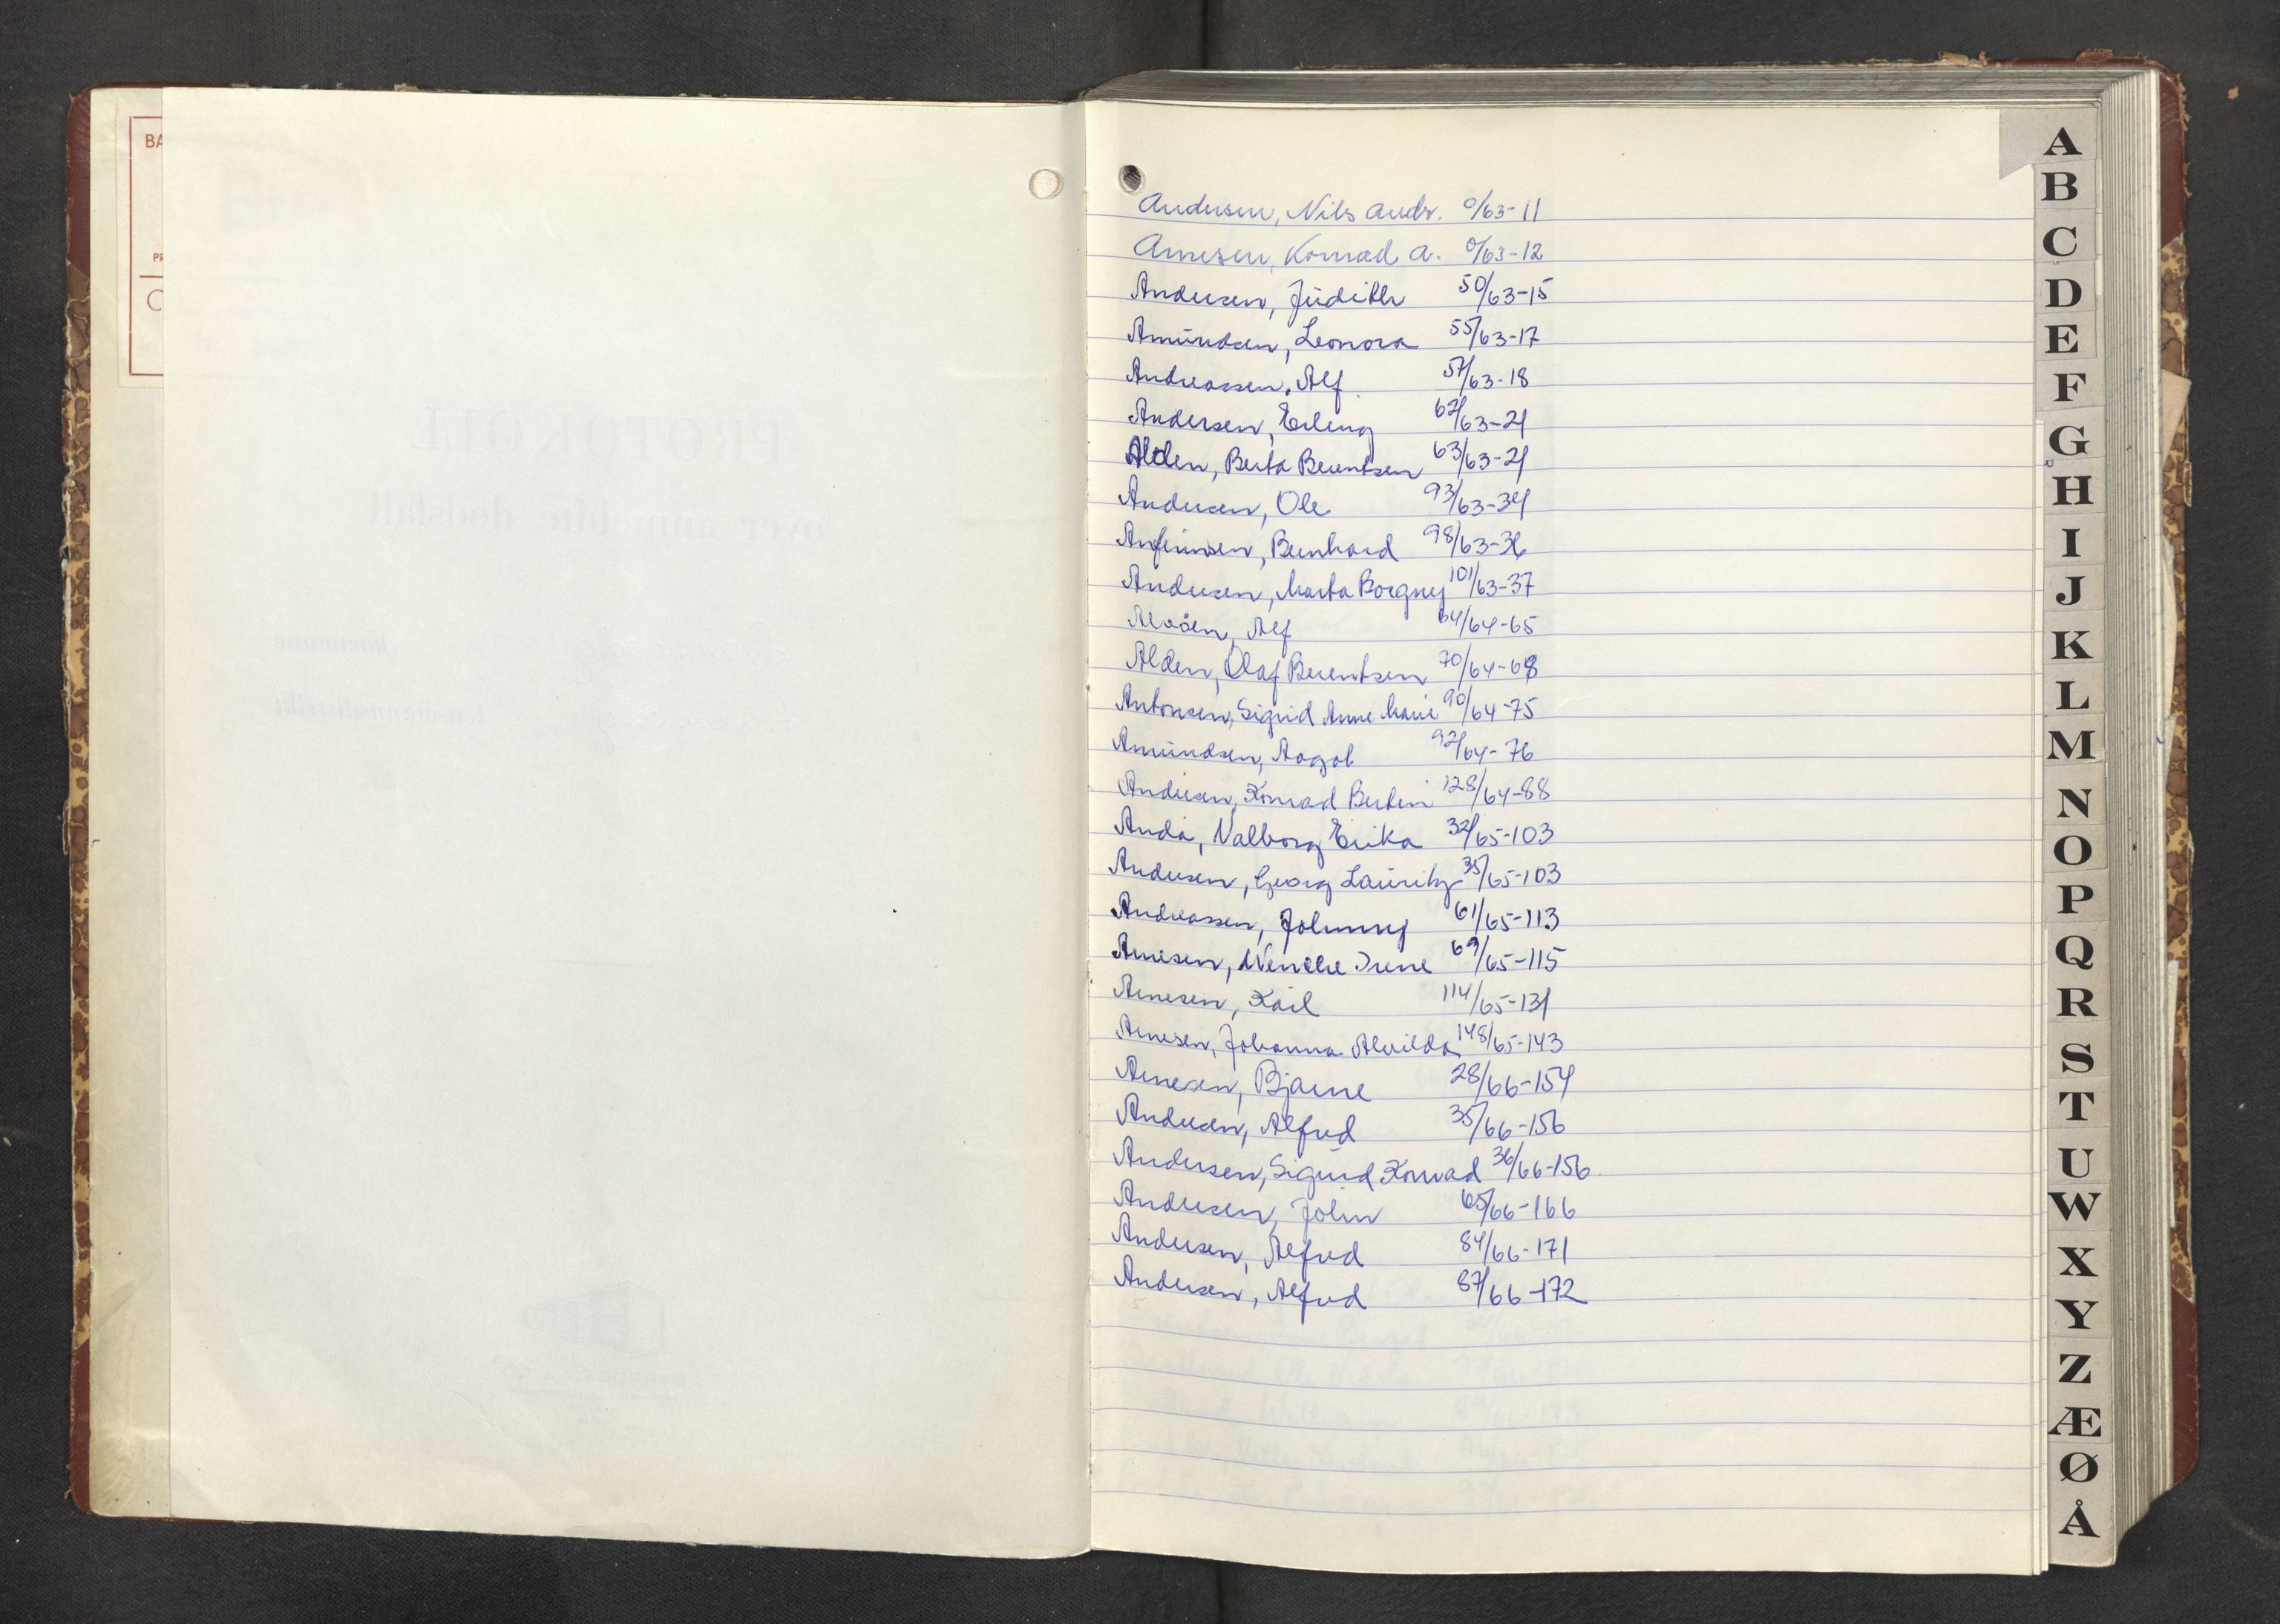 BA
PR
C
PROTOKOLL
over anmeldte dødsfall
kommune
lensmannsdistrikt
Andersen, Nils Andr. 0/63-11
Arnesen, Konrad A. 0/63-12
Andersen, Judith 50/63-15
Amundsen, Leonora 55/63-17
Andreassen, Alf 57/63-18
Andersen, Erling 62/63-21
Alden, Berta Berentsen 63/63-21
Andersen, Ole 93/63-34
Anfinnsen, Bernhard 98/63-36
Andersen, Marta Borgny 101/63-37
Alvøen, Alf 64/64-65
Alden, Olaf Berentsen 70/64-68
Antonsen, Sigrid Anne Marie 90/64-75
Amundsen, Aagot 92/64-76
Andersen, Konrad Bertin 128/64-88
Anda, Valborg Erika 32/65-103
Andersen, Georg Lauritz 35/65-103
Andreassen, Johnny 61/65-113
Arnesen, Wenche Irene 69/65-115
Arnesen, Karl 114/65-131
Arnesen, Johanna Alvilda 148/65-143
Arnesen, Bjarne 28/66-154
Andersen, Alfred 35/66-156
Andersen, Sigurd Konrad 36/66-156
Andersen, John 65/66-166
Andersen, Alfred 84/66-171
Andersen, Alfred 87/66-172
A
B
C
D
E
F
G
H
I
J
K
L
M
N
O
P
Q
R
S
T
U
W
X
Y
Z
Æ
Ø
Å